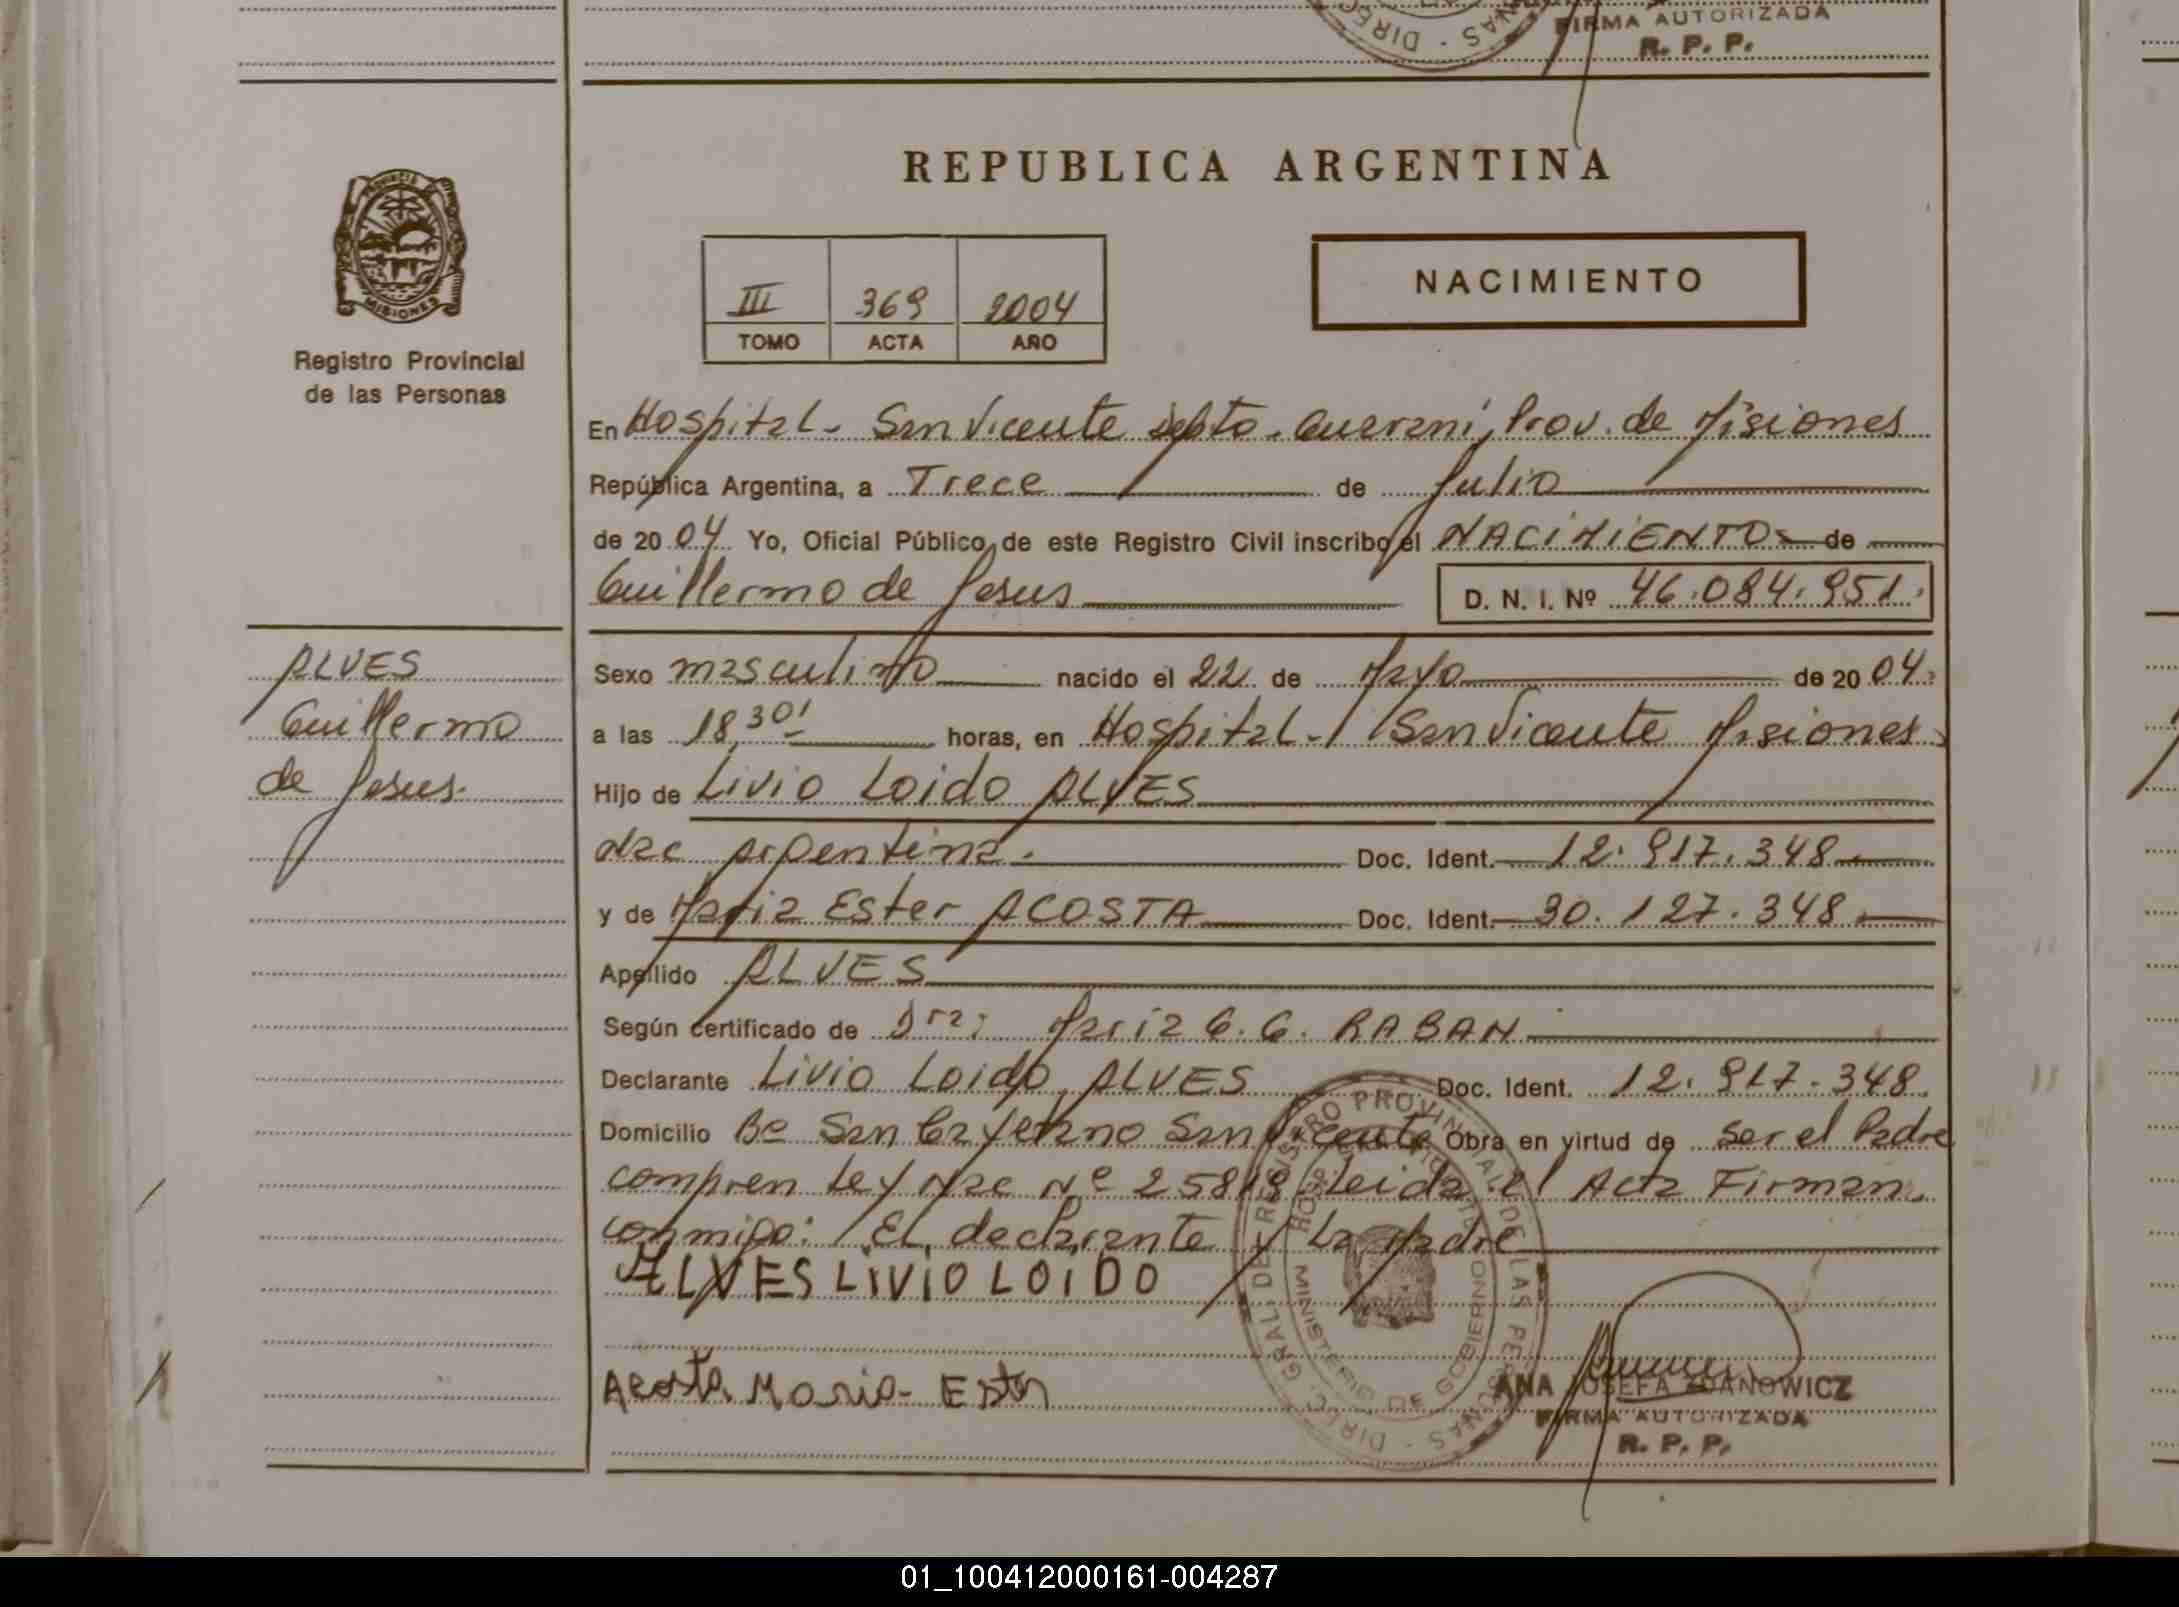 FIRMA AUTORIZADA
R. P. P.
REPUBLICA ARGENTINA
PROVINCIA DE
MISIONES
Registro Provincial
de las Personas
III 369 2004
TOMO ACTA AÑO
NACIMIENTO
En Hospital - San Vicente Dpto. Guarani, Prov. de Misiones
República Argentina, a Trece de Julio
de 2004 Yo, Oficial Público de este Registro Civil inscribo el NACIMIENTO de
Guillermo de Jesus D. N. I. Nº 46.084.951.
ALVES
Guillermo
de Jesus.
Sexo masculino nacido el 22 de Mayo de 2004.
a las 18,30' horas, en Hospital - San Vicente Misiones
Hijo de Livio Loido ALVES
Nac Argentina. Doc. Ident. 12.917.348
y de Maria Ester ACOSTA Doc. Ident. 30.127.348
Apellido ALVES
Según certificado de Dra: Maria G. G. RABAN
Declarante Livio Loido ALVES Doc. Ident. 12.917.348.
Domicilio Bº San Cayetano San Vicente Obra en virtud de ser el Padre
compren Ley Nac Nº 25818 Leida el Acta Firman
conmigo: El declarante y La Madre
ALVES LIVIO LOIDO
Acosta Maria - Ester
DIREC. GRAL. DE REGISTRO PROVINCIAL DE LAS PERSONAS
MINISTERIO DE GOBIERNO
ANA JOSEFA ZDANOWICZ
FIRMA AUTORIZADA
R. P. P.
01_100412000161-004287